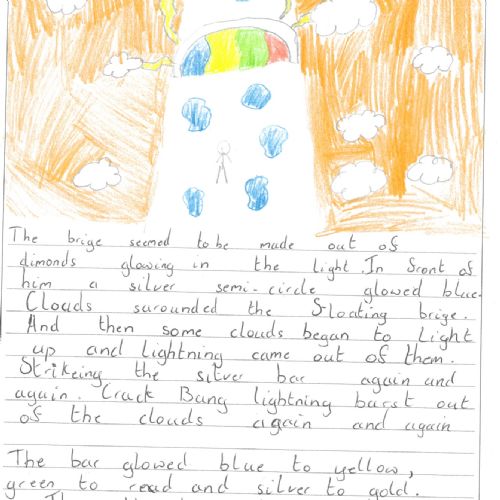 The brige seemed to be made out of
dimonds glowing in the light. In front of
him a silver semi-circle glowed blue.
Clouds surounded the floating brige.
And then some clouds began to light
up and lightning came out of them.
Strikeing the silver bar again and
again. Crack Bang lightning burst out
of the clouds again and again
The bar glowed blue to yellow,
green to read and silver to gold.